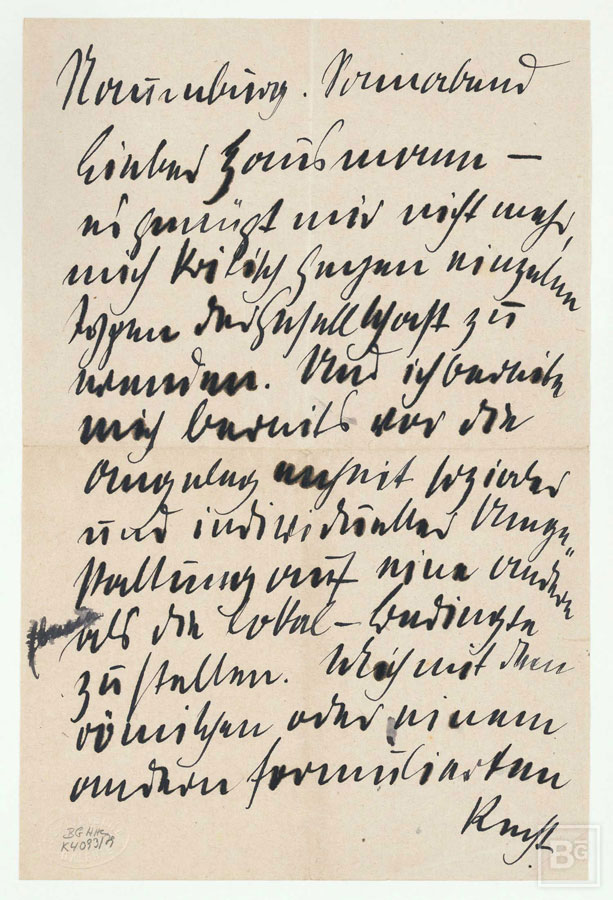 Naumburg. Sonnabend
Lieber Hausmann —
es genügt mir nicht mehr,
mich kritisch gegen einzelne
Typen der Gesellschaft zu
wenden. Und ich bereite
mich bereits vor die
Angelegenheit sozialer
und individueller Umge-
staltung auf eine andere
als die lokal-bedingte
zu stellen. Mich mit dem
römischen oder einem
andern formulierten
Recht
BG
K4093/79
BG